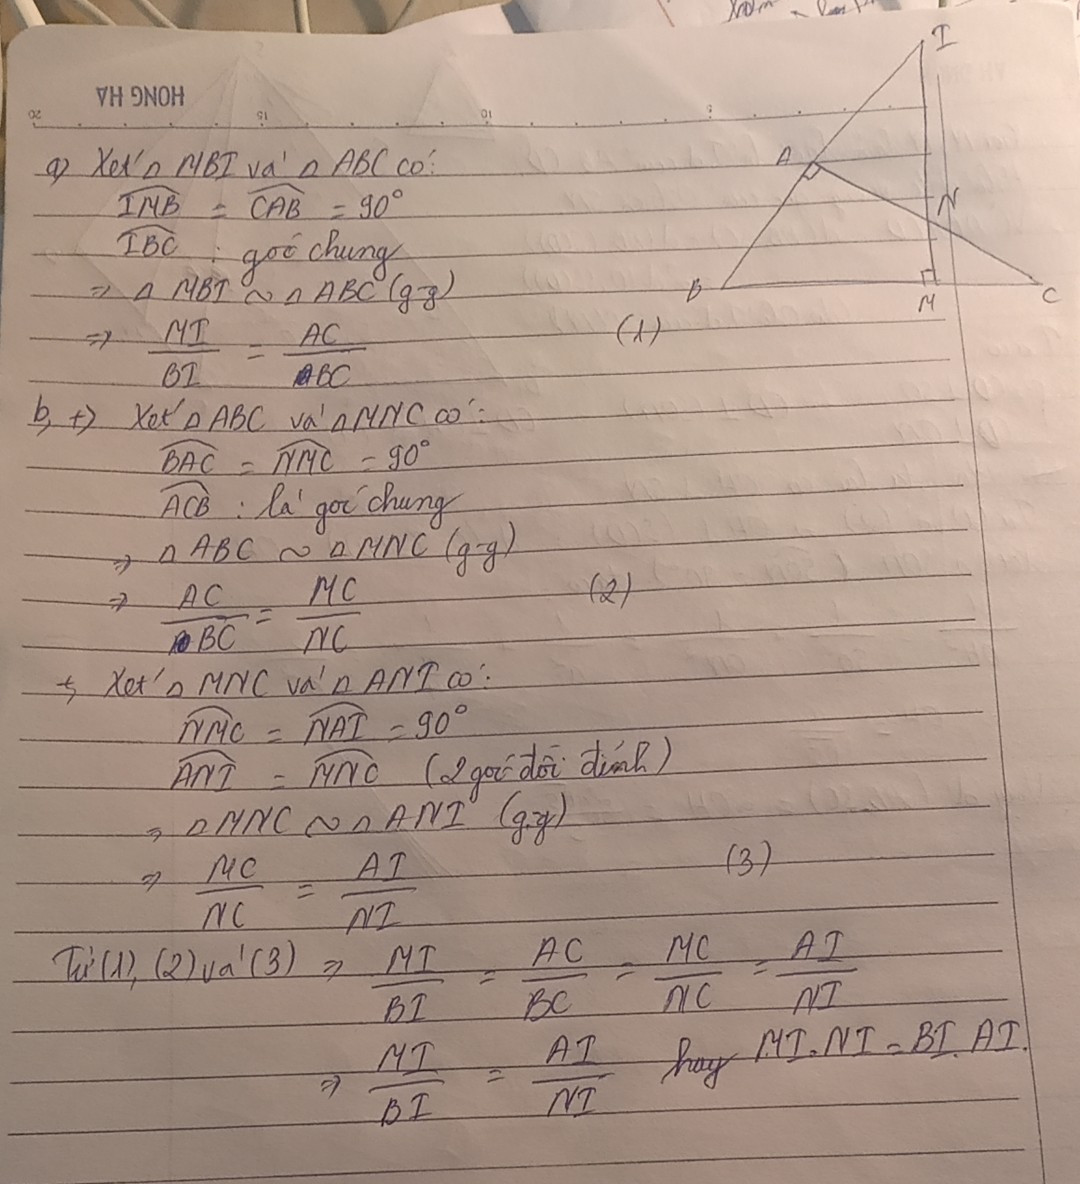 HONG HA
20 15 10 5
I
A
N
B
M
C
a) Xét △ MBI và △ ABC có:
IMB = CAB = 90°
IBC : góc chung
⇒ △ MBI ~ △ ABC (g-g)
⇒ MI/BI = AC/BC (1)
b, +) Xét △ ABC và △ MNC có:
BAC = NMC = 90°
ACB : là góc chung
⇒ △ ABC ~ △ MNC (g-g)
⇒ AC/BC = MC/NC (2)
+, Xét △ MNC và △ ANI có:
NMC = NAI = 90°
ANI = MNC (2 góc đối đỉnh)
⇒ △ MNC ~ △ ANI (g.g)
⇒ MC/NC = AI/NI (3)
Từ (1), (2) và (3) ⇒ MI/BI = AC/BC = MC/NC = AI/NI
⇒ MI/BI = AI/NI hay MI.NI = BI.AI.